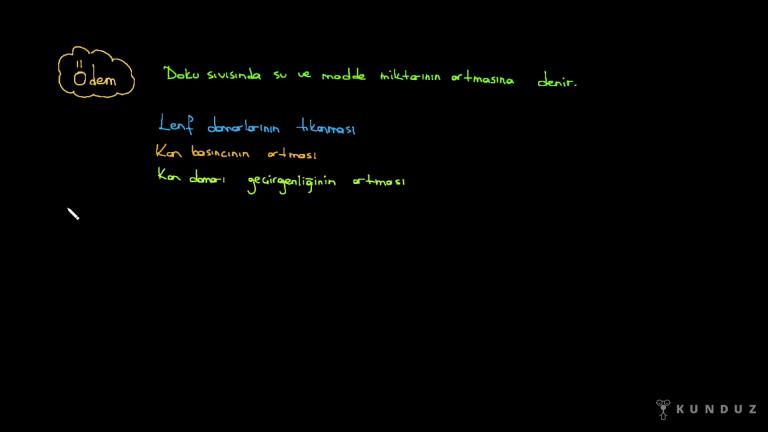 Ödem
Doku sıvısında su ve madde miktarının artmasına denir.
Lenf damarlarının tıkanması
Kan basıncının artması
Kan damarı geçirgenliğinin artması
KUNDUZ